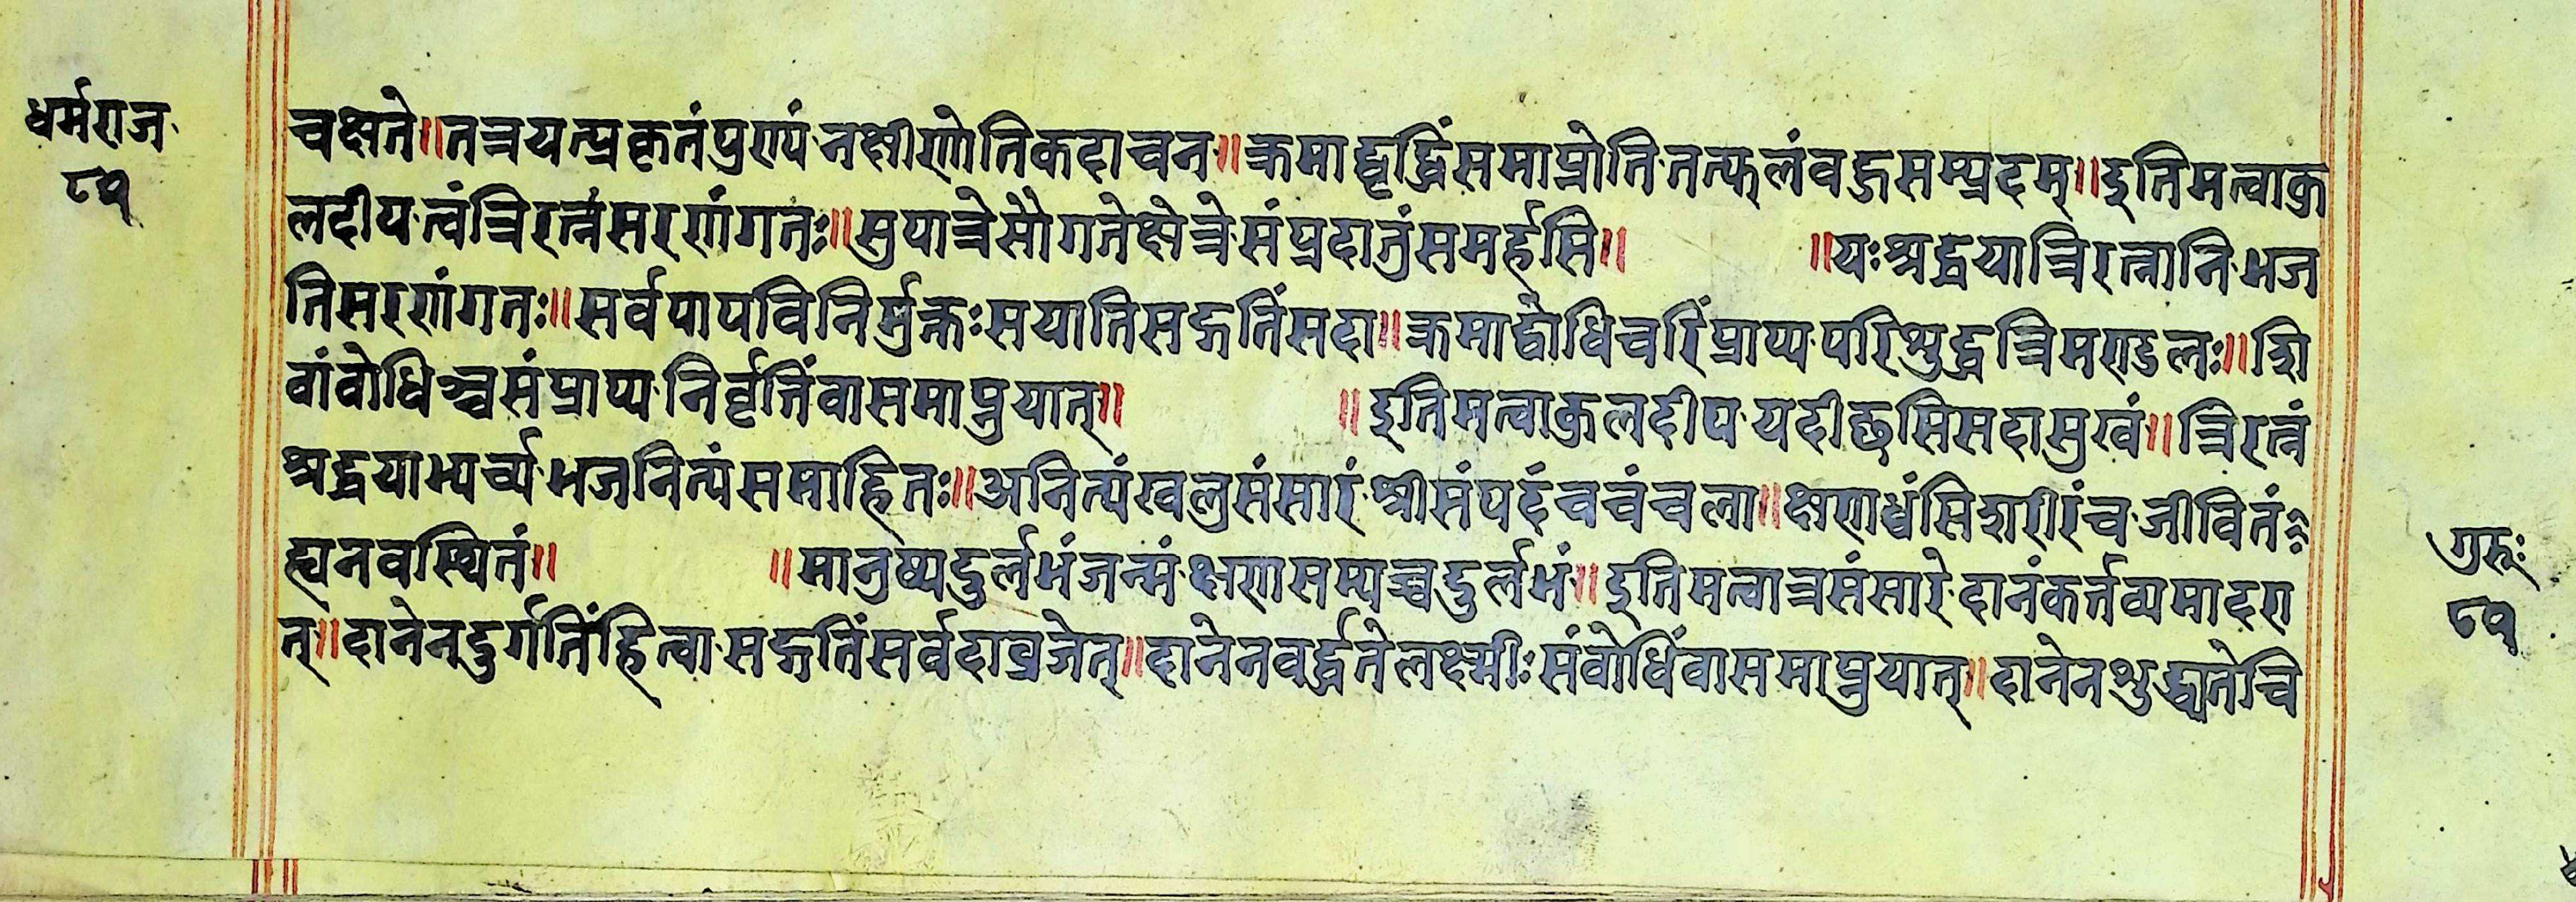 धर्मराज
८५
चक्षते॥तत्रयत्प्रकृतंपुण्यं·नक्षीणोतिकदाचन॥क्रमाद्वृद्धिंसमाप्नोति·तत्फलंवहुसम्प्रदम्॥इतिमत्वाकु
लदीप·त्वंत्रिरत्नंसरणंगतः॥सुपात्रेसौगतेक्षेत्रे·संप्रदातुंसमर्हसि॥ ॥यःश्रद्धयात्रिरत्नानि·भज
तिसरणंगतः॥सर्वपापविनिर्मुक्तःसयातिसद्गतिंसदा॥क्रमाद्वोधिचरिंप्राप्य·परिशुद्धत्रिमण्डलः॥शि
वांवोधिञ्चसंप्राप्य·निर्वृतिंवासमाप्नुयात्॥ ॥इतिमत्वाकुलदीप·यदीछसिसदासुखं॥त्रिरत्नं
श्रद्धयाभ्यर्च्य·भजनित्यंसमाहितः॥अनित्यंखलुसंसारं·श्रीसंपदंचचंचला॥क्षणध्वंसिशरीरंच·जीवितं
ह्यनवस्थितं॥ ॥मानुष्यदुर्लभंजन्मं·क्षणसम्पच्चदुर्लभं॥इतिमत्वात्रसंसारे·दानंकर्त्तव्यमादरा
त्॥दानेनदुर्गतिंहित्वा·सद्गतिंसर्वदाव्रजेत्॥दानेनवर्द्धतेलक्ष्मीःसंवोधिंवासमाप्नुयात्॥दानेनशुद्ध्यतेचि
गुरुः
८५